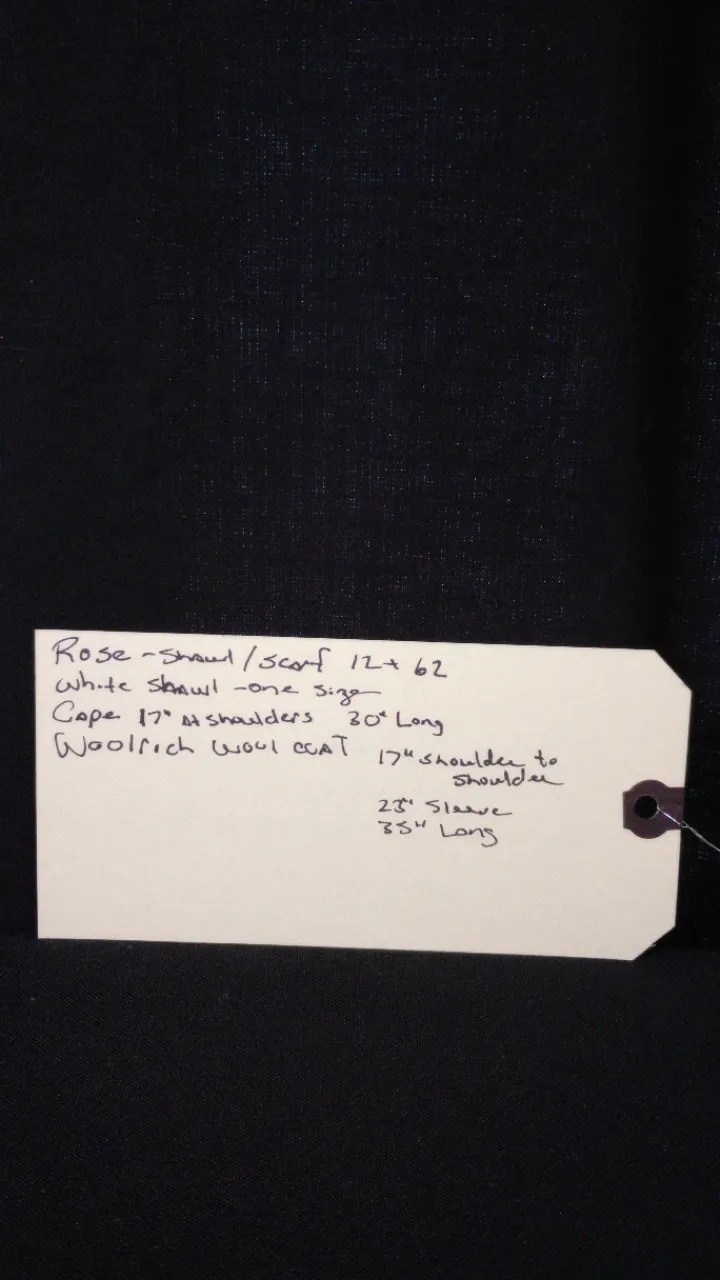 Rose - Shawl / scarf 12 x 62
White Shawl - one size
Cape 17" At shoulders 30" Long
Woolrich Wool COAT 17" shoulder to
shoulder
23" Sleeve
35" Long